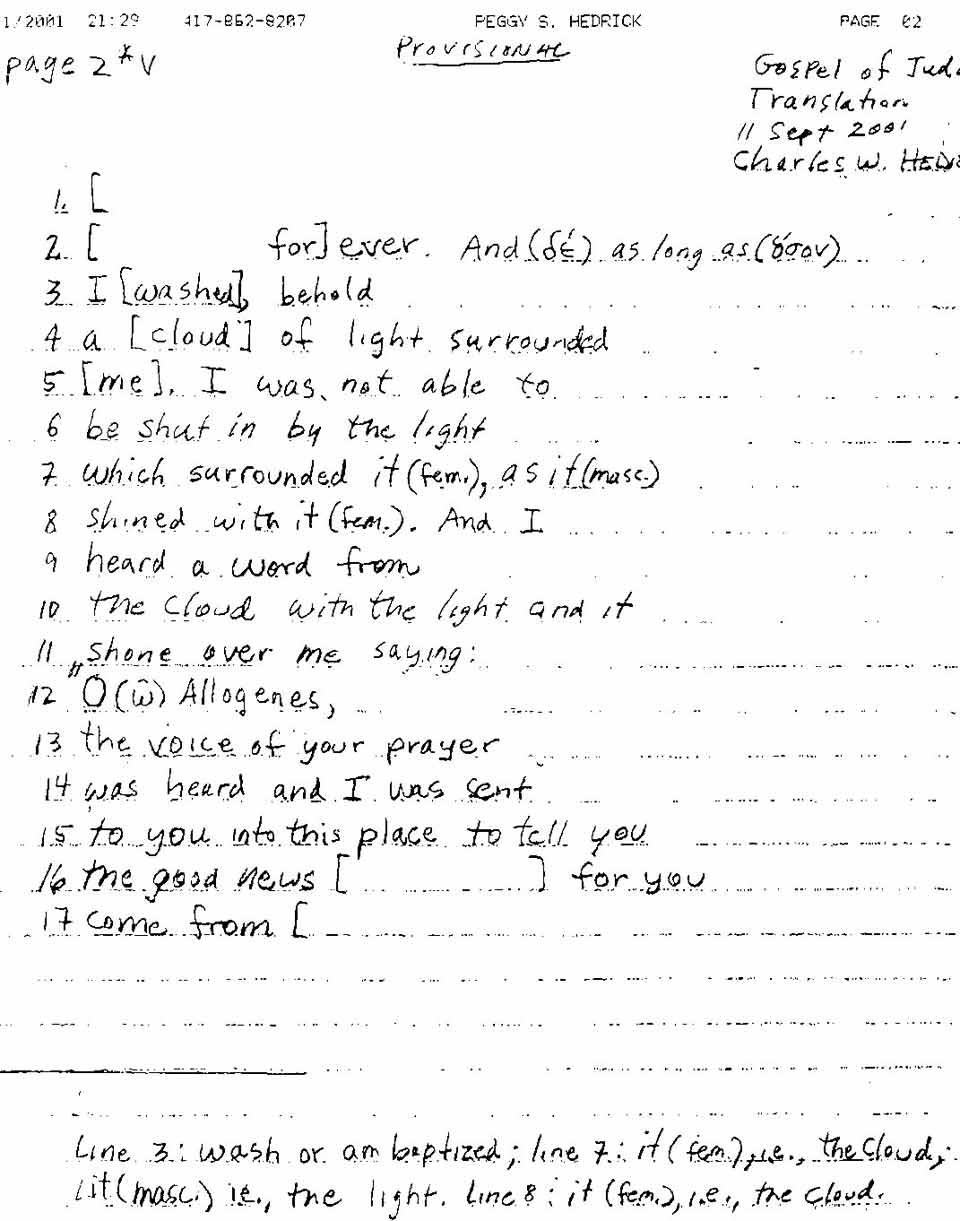 1/2001 21:29 417-862-8287 PEGGY S. HEDRICK PAGE 02
PROVISIONAL
page 2*v
Gospel of Juda
Translation
11 Sept 2001
Charles W. HEDR
1. [
2. [ for] ever. And (δέ) as long as (ὅσον)
3 I [washed], behold
4 a [cloud] of light surrounded
5 [me]. I was not able to
6 be shut in by the light
7 which surrounded it (fem.), as it (masc.)
8 shined with it (fem.). And I
9 heard a word from
10 the cloud with the light and it
11 shone over me saying:
12 "O (ὦ) Allogenes,
13 the voice of your prayer
14 was heard and I was sent
15 to you into this place to tell you
16 the good news [ ] for you
17 come from [
Line 3: wash or am baptized; line 7: it (fem.), i.e., the cloud;
it (masc.) ie., the light. Line 8: it (fem.), i.e., the cloud.